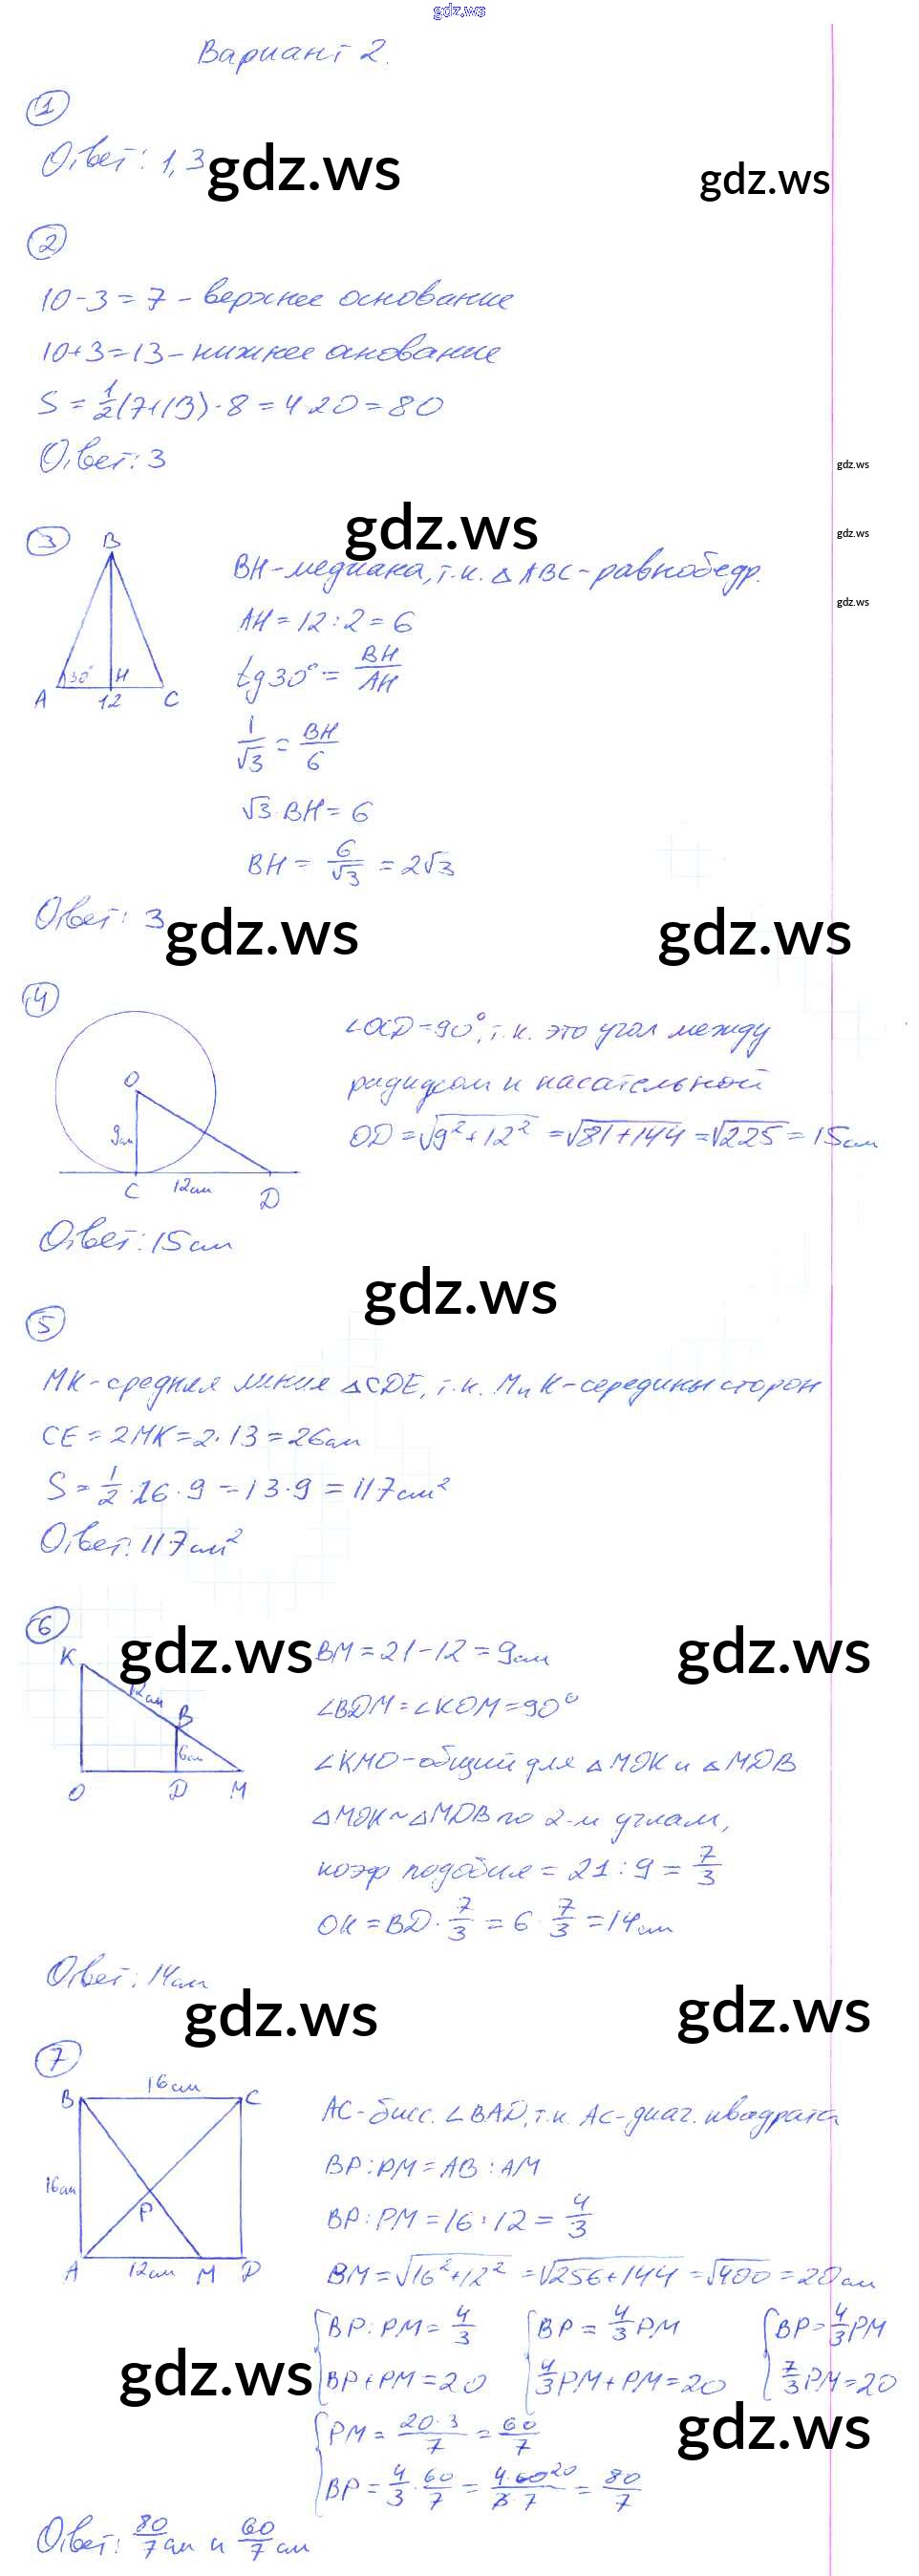 gdz.ws
Вариант 2.
1
Ответ: 1,3
gdz.ws
gdz.ws
2
10-3=7 - верхнее основание
10+3=13 - нижнее основание
S = 1/2(7+13)·8 = 4·20 = 80
Ответ: 3
gdz.ws
3
gdz.ws
gdz.ws
gdz.ws
B
30° H
A 12 C
BH - медиана, т.к. △ABC - равнобедр.
AH = 12:2 = 6
tg30° = BH/AH
1/√3 = BH/6
√3·BH = 6
BH = 6/√3 = 2√3
Ответ: 3
gdz.ws
gdz.ws
4
O
9см
C 12см D
∠OCD=90°, т.к. это угол между
радиусом и касательной
OD = √9²+12² = √81+144 = √225 = 15см
Ответ: 15см
gdz.ws
5
MK - средняя линия △CDE, т.к. M и K - середины сторон
CE = 2MK = 2·13 = 26см
S = 1/2·26·9 = 13·9 = 117см²
Ответ: 117см²
6
gdz.ws
gdz.ws
K
12см
B
6см
O D M
BM = 21-12 = 9см
∠BDM = ∠KOM = 90°
∠KMO - общий для △MOK и △MDB
△MOK ~ △MDB по 2-м углам,
коэф подобия = 21:9 = 7/3
OK = BD·7/3 = 6·7/3 = 14см
Ответ: 14см
gdz.ws
gdz.ws
7
16см
B C
16см
P
A 12см M D
AC - бисс. ∠BAD, т.к. AC - диаг. квадрата
BP:PM = AB:AM
BP:PM = 16:12 = 4/3
BM = √16²+12² = √256+144 = √400 = 20см
{BP:PM = 4/3 {BP = 4/3PM {BP = 4/3PM
BP+PM = 20 4/3PM+PM = 20 7/3PM = 20
gdz.ws
gdz.ws
{PM = 20·3/7 = 60/7
BP = 4/3·60/7 = 4·60 20/3·7 = 80/7
Ответ: 80/7см и 60/7см